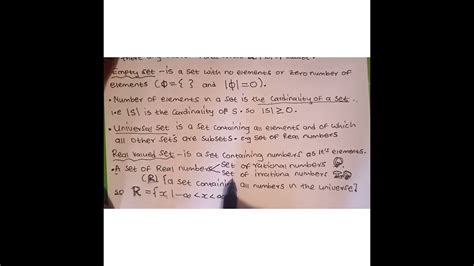 Empty set - is a set with no elements or zero number of
elements (ϕ = { } and |ϕ| = 0).
• Number of elements in a set is the Cardinality of a set.
i.e |S| is the Cardinality of S. so |S| ≥ 0.
• Universal set is a set containing all elements and of which
all other sets are subsets. eg set of Real numbers
Real valued set - is a set containing numbers as its elements.
• A set of Real numbers set of rational numbers
(ℝ) set of irrational numbers
{a set containing all numbers in the universe}
so ℝ = {x | -∞ < x < ∞